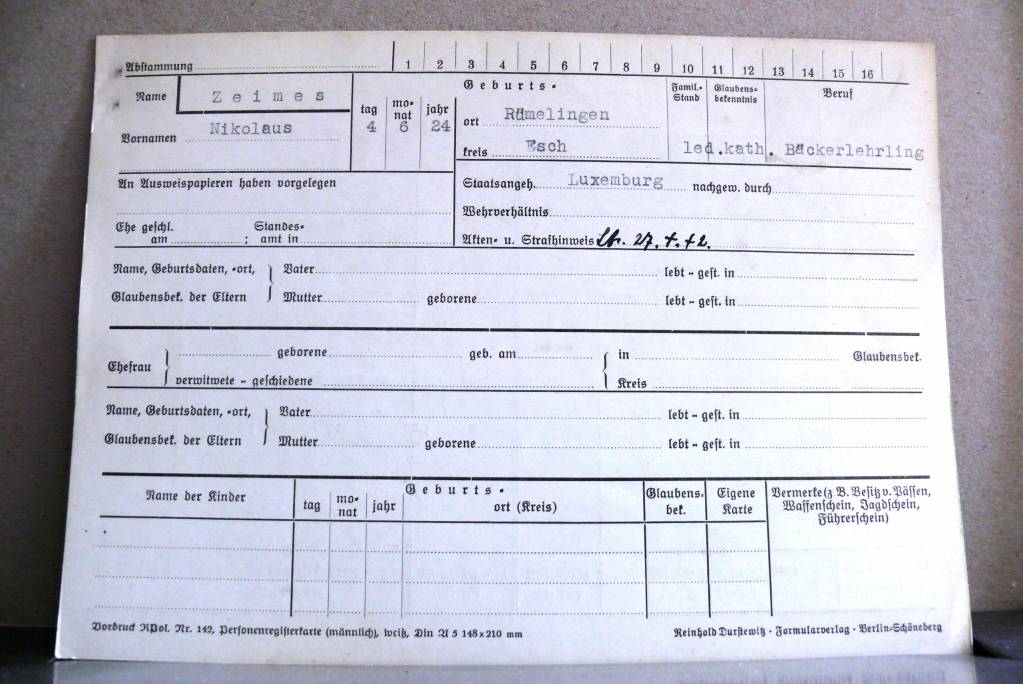 Abstammung 1 2 3 4 5 6 7 8 9 10 11 12 13 14 15 16
Name Zeimes
Vornamen Nikolaus
tag monat jahr
4 6 24
Geburts-
ort Rümelingen
kreis Esch
Famil.-Stand Glaubensbekenntnis Beruf
led. kath. Bäckerlehrling
An Ausweispapieren haben vorgelegen
Staatsangeh. Luxemburg nachgew. durch
Wehrverhältnis
Ehe geschl. Standes-
am ; amt in
Akten- u. Strafhinweis 27. 4. 42.
Name, Geburtsdaten, -ort, Vater lebt - gest. in
Glaubensbek. der Eltern Mutter geborene lebt - gest. in
geborene geb. am in Glaubensbek.
Ehefrau
verwitwete - geschiedene Kreis
Name, Geburtsdaten, -ort, Vater lebt - gest. in
Glaubensbek. der Eltern Mutter geborene lebt - gest. in
Name der Kinder
tag monat jahr
Geburts-
ort (Kreis)
Glaubensbek.
Eigene Karte
Vermerke (z. B. Besitz v. Pässen,
Waffenschein, Jagdschein,
Führerschein)
Vordruck RPol. Nr. 142, Personenregisterkarte (männlich), weiß, Din A 5 148 x 210 mm
Reinhold Durstewitz · Formularverlag · Berlin-Schöneberg